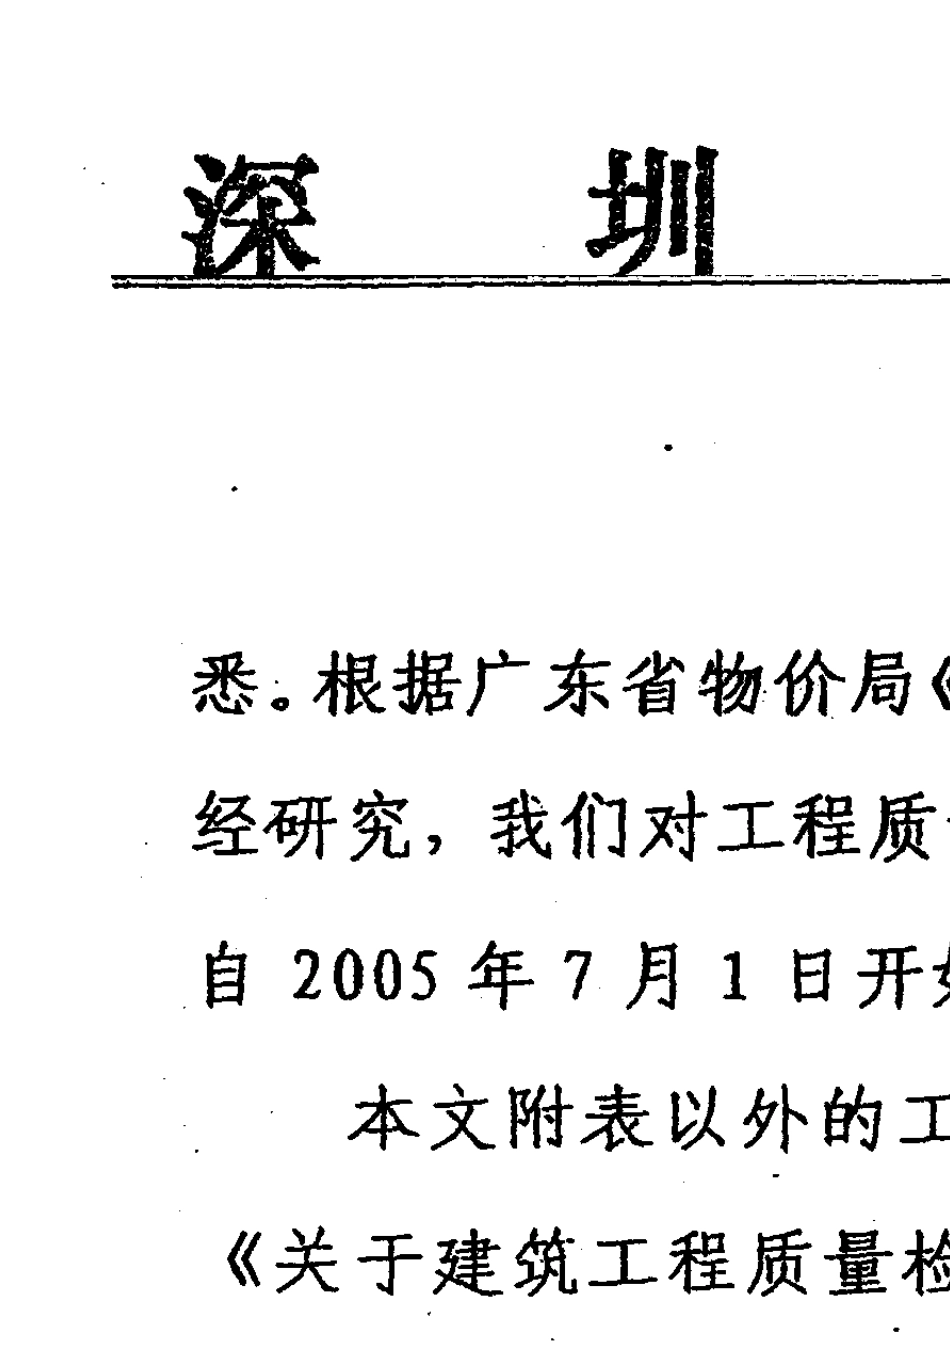 深 圳
悉。根据广东省物价局《
经研究，我们对工程质
自 2005 年 7 月 1 日开
本文附表以外的工
《关于建筑工程质量检